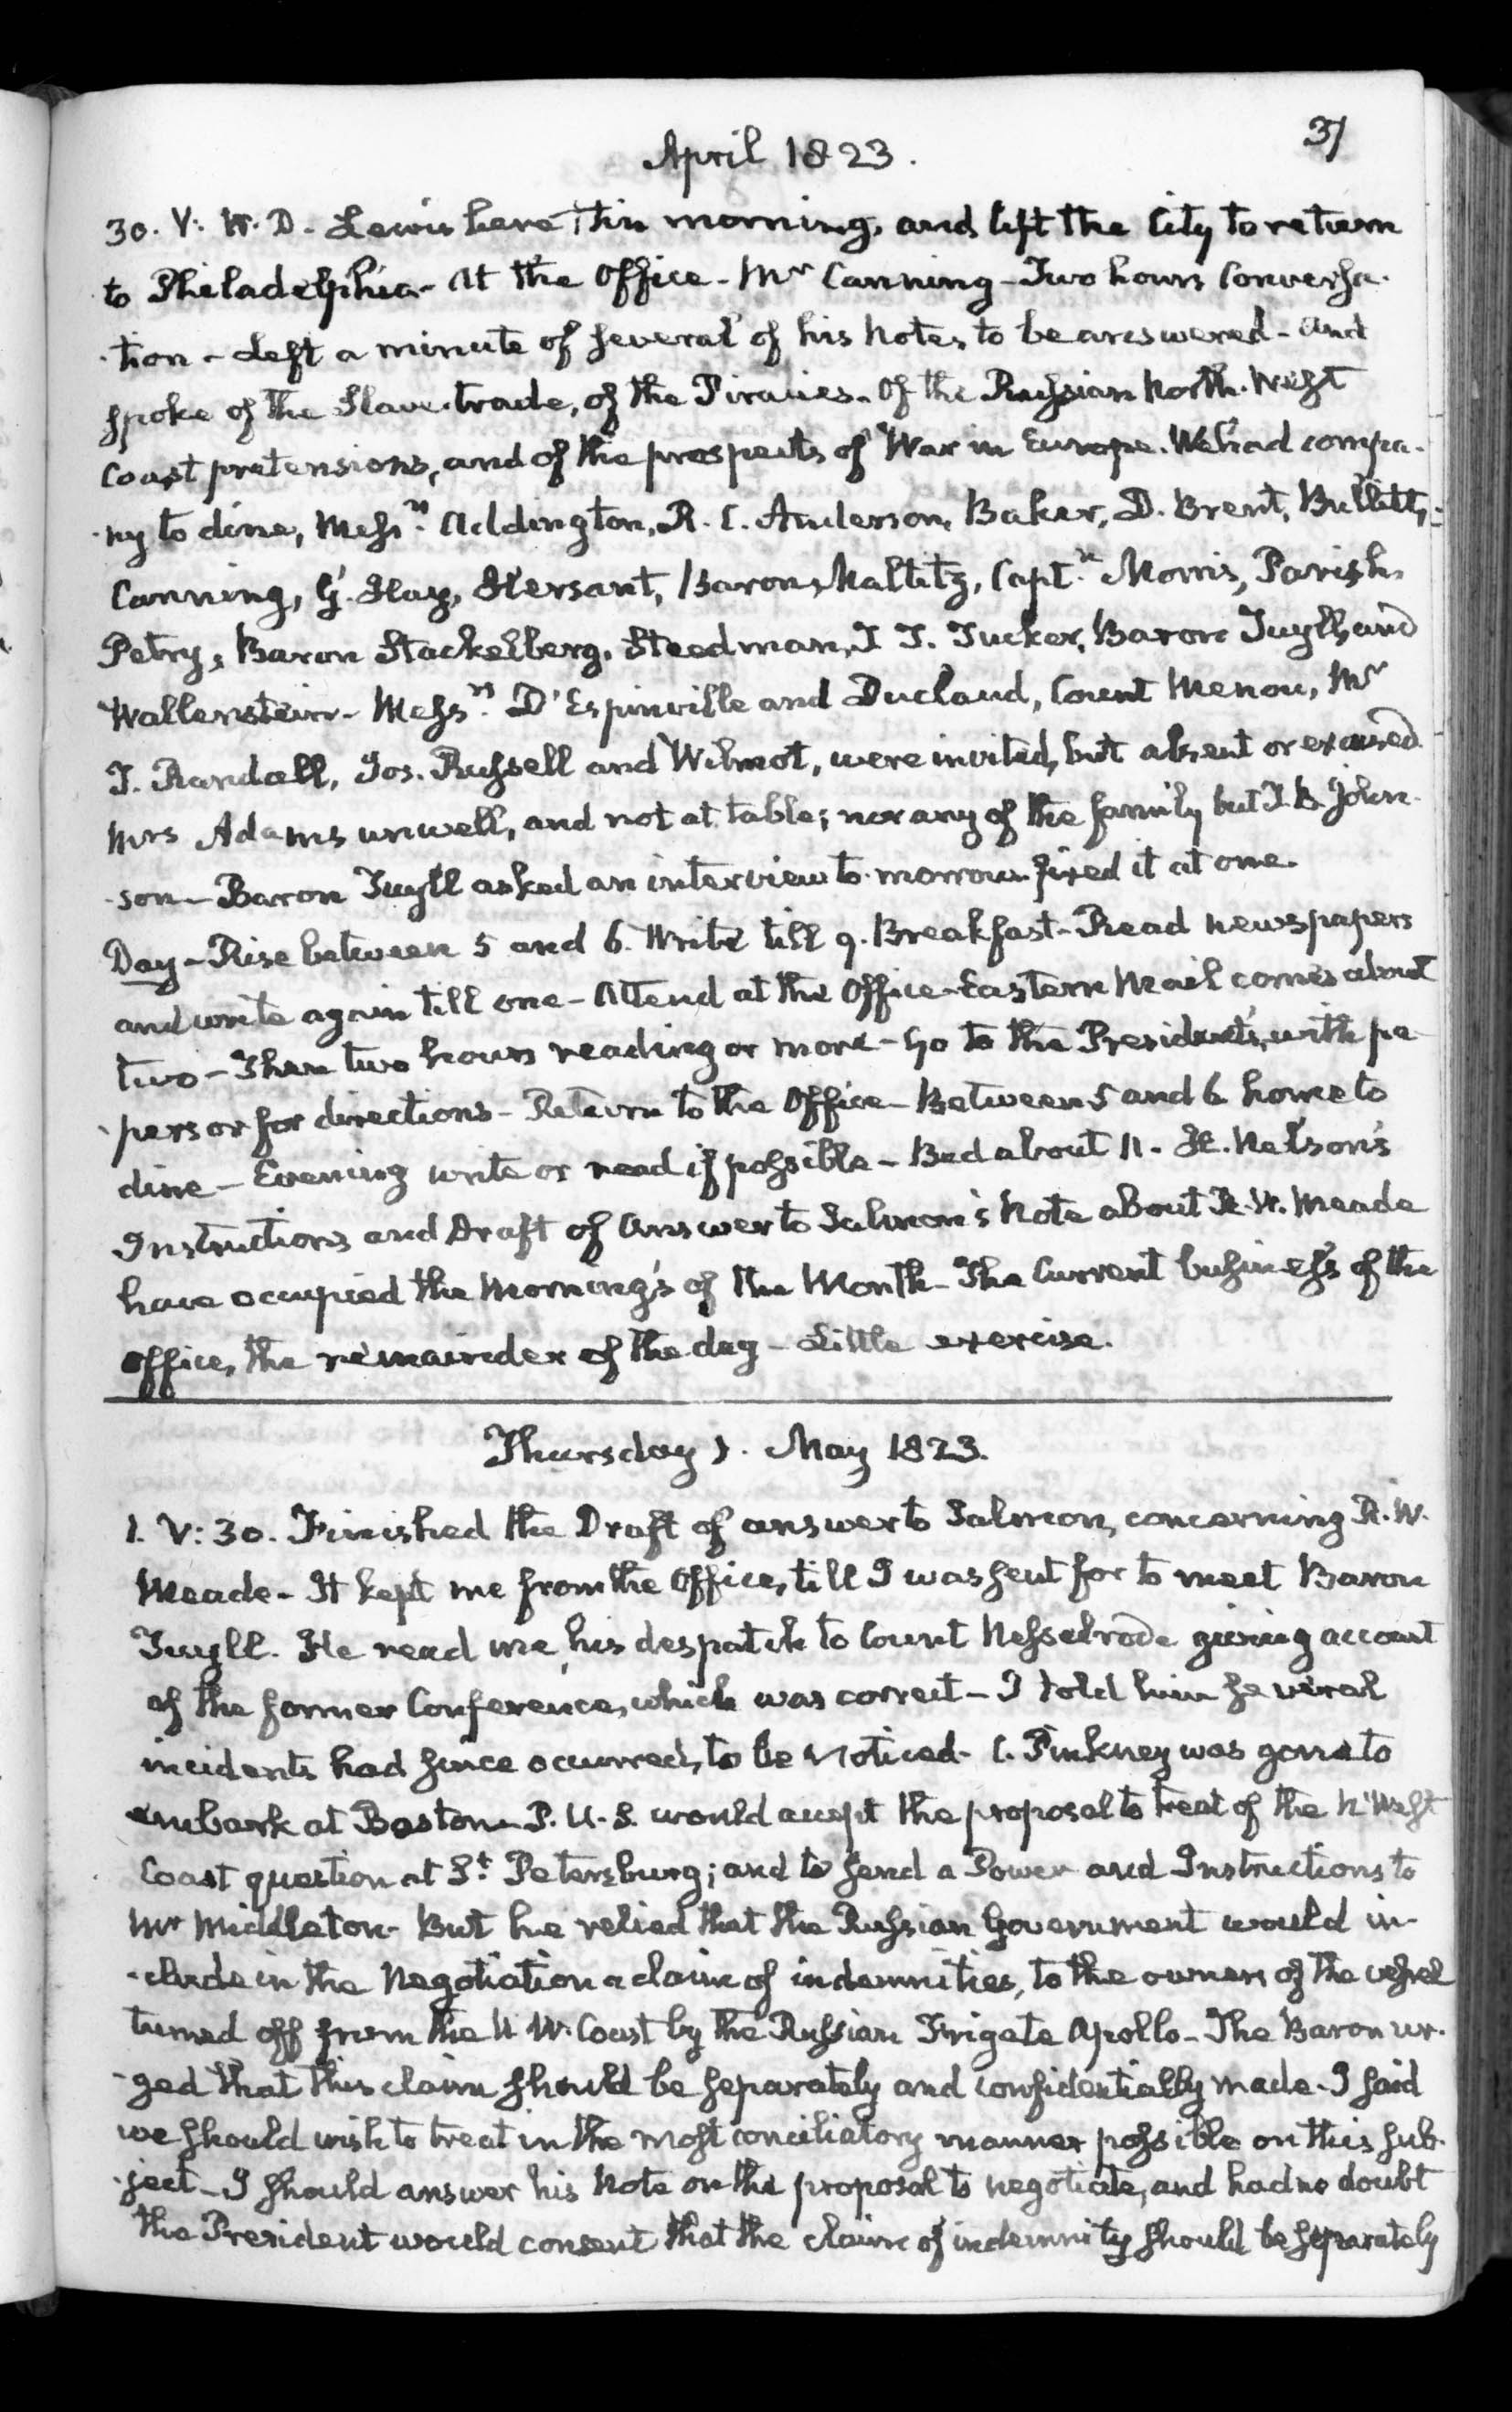 37
April 1823.
30. V: W. D. Lewis here this morning, and left the City to return
to Philadelphia - At the Office - Mr Canning - Two hours Conversa-
-tion - Left a minute of several of his Notes to be answered - and
spoke of the Slave-trade, of the Piracies - Of the Russian North-West
Coast pretensions, and of the prospects of War in Europe. We had compa-
-ny to dine, Messrs. Addington, R. C. Anderson, Baker, D. Brent, Bullitt,
Canning, G. Hay, Hersant, Baron Maltitz, Captn Morris, Parish,
Petry, Baron Stackelberg, Steedman, T T. Tucker, Baron Tuyll, and
Wallenstein - Messrs. D'Espinville and Duclaud, Count Menou, Mr
T. Randall, Jos. Russell and Wilmot, were invited, but absent or excused
Mrs Adams unwell, and not at table; nor any of the family but T. B. John-
-son - Baron Tuyll asked an interview to-morrow fixed it at one.
Day - Rise between 5 and 6. Write till 9. Breakfast - Read newspapers
and write again till one - Attend at the Office - Eastern Mail comes about
two - Then two hours reading or more - Go to the President's, with pa-
-pers or for directions - Return to the Office - Between 5 and 6 home to
dine - Evening write or read if possible - Bed about 11. H. Nelson's
Instructions and Draft of answer to Salmon's Note about R. W. Meade
have occupied the Morning's of the Month - The Current business of the
Office, the remainder of the day - Little exercise.
Thursday 1. May 1823.
1. V: 30. Finished the Draft of answer to Salmon, concerning R. W.
Meade - It kept me from the Office, till I was sent for to meet Baron
Tuyll. He read me, his despatch to Count Nesselrode giving account
of the former Conference, which was correct - I told him several
incidents had since occurred, to be noticed - C. Pinkney was gone to
embark at Boston - P. U. S. would accept the proposal to treat of the N. West
Coast question at St. Petersburg; and to send a Power and Instructions to
Mr Middleton - But he relied that the Russian Government would in-
-clude in the Negotiation a claim of indemnities, to the owners of the vessel
turned off from the N. W. Coast by the Russian Frigate Apollo - The Baron ur-
-ged that this claim should be separately and confidentially made - I said
we should wish to treat in the most conciliatory manner possible on this sub-
-ject - I should answer his Note on the proposal to negotiate, and had no doubt
the President would consent that the claim of indemnity should be separately